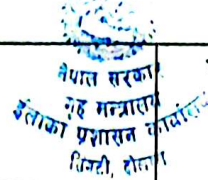 नेपाल सरकार
गृह मन्त्रालय
इलाका प्रशासन कार्यालय